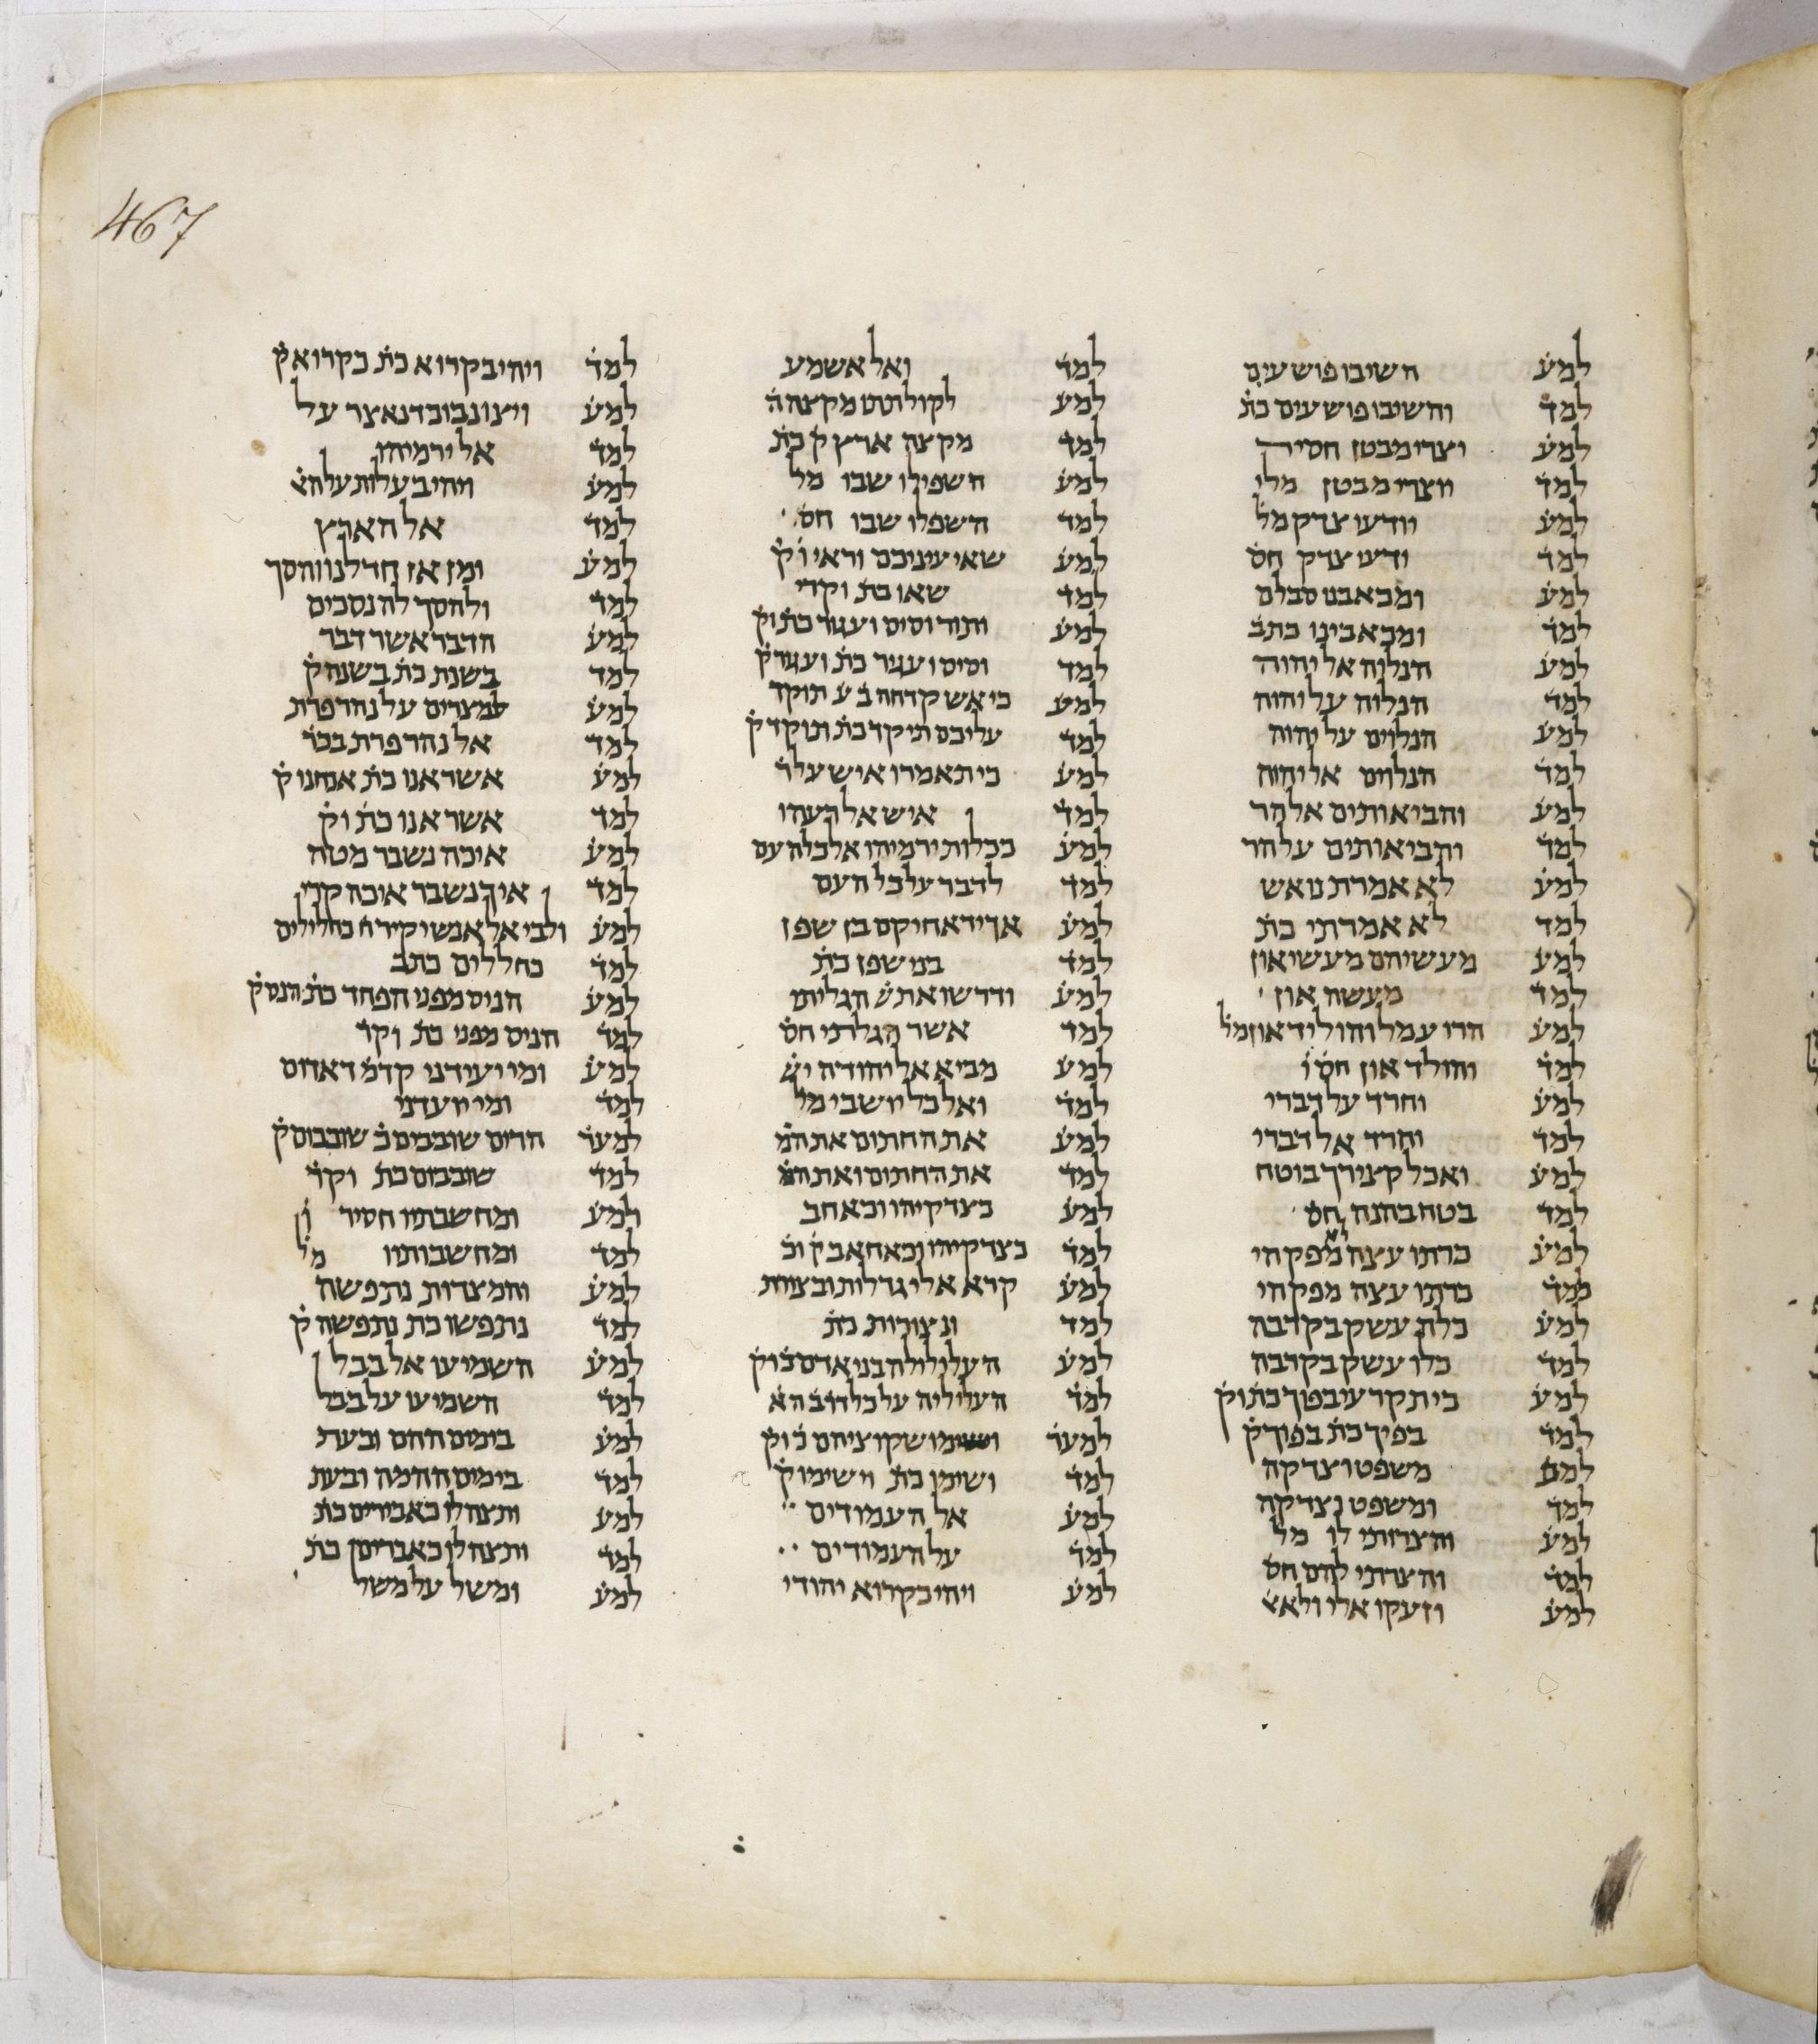 467
למע השיבו פושעים
למד והשיבו פושעים כת
למע וצרי מבטן חסיר
למד ויוצרי מבטן מלי
למע יודעי צדק מל
למד ודעי צדק חס
למע ומכאבנו סבלם
למד ומכאבינו כתב
למע הנלוה אל יהוה
למד הנלוה על יהוה
למע הנלוים על יהוה
למד הנלוים אל יהוה
למע והביאותים אל הר
למד והביאותים על הר
למע לא אמרת נואש
למד לא אמרתי כת
למע מעשיהם מעשי און
למד מעשה און
למע הרו עמל והוליד און מל
למד והולד און חס
למע וחרד על דברי
למד וחרד אל דברי
למע ואכל קצירך
למד בטח בהנה חס
למע כרתו עצה מפקחי
למד כרתו עצה מפקחי
למע כלה עשק בקרבה
למד כלו עשק בקרבה
למע כי תקרעי בפוך
למד בפיך כת בפוך ק
למע משפט וצדקה
למד ומשפט וצדקה
למע והצרותי לו מל
למד והצרתי להם חס
למע וזעקו אלי ולא
למד ואל אשמע
למע לקול תתו מקצה ה
למד מקצה ארץ ק כת
למע השפילו שבו מל
למד השפלו שבו חס
למע שאי עיניכם וראי
למד שאו כת וקרי
למע ותור וסיס ועגור
למד וסיס ועגור כת ועגר ק
למע כי אש קדחה תוקד
למד עליכם תיקד כת תוקד ק
למע כי תאמרו איש על ר
למד איש אל רעהו
למע ככלות ירמיהו אל כל העם
למד לדבר על כל העם
למע אך יד אחיקם בן שפן
למד בני שפן כת
למע ודרשו את הגליתי
למד אשר הגלתי חס
למע מביא אל יהודה
למד ואל כל יושבי
למע את החתום את המ
למד את החתום ואת המ
למע כצדקיהו וכאחב
למד כצדקיהו וכאחאב
למע קרא אלי גדלות ובצורות
למד ונצורות כת
למע
למד העלילה על כל
למער ושימו שקוציהם
למד ושימו כת וישימו ק
למע אל העמודים
למד על העמודים
למע ויהי כקרוא יהודי
למד ויהי בקרוא כת כקרוא ק
למע ויצו נבוכדנאצר על
למד אל ירמיהו
למע ויהי בעלות על הא
למד אל הארץ
למע ומן אז חדלנו והסך
למד ולהסך לה נסכים
למע הדבר אשר דבר
למד בשנת כת בשנה ק
למע למצרים על נהר פרת
למד אל נהר פרת
למע אשר אנו כת אנחנו ק
למד אשר אנו כת וק
למע איכה נשבר מטה
למד איך נשבר איכה קרי
למע ולבי אל אנשי קיר ח כחלילים
למד כחללים כתב
למע הניס מפני הפחד כת הנס ק
למד הניס מפני כת וקר
למע ומי יעידני
למד ומי יועדני
למער הרים שובבים שובבום ק
למד שובבום כת וקר
למע ומחשבתיו חסיר
למד ומחשבותיו מל
למע והמצדות נתפשה
למד נתפשו כת נתפשה ק
למע השמיעו אל בבל
למד השמיעו על בבל
למע בימים ההם ובעת
למד בימים ההמה ובעת
למע ותצהלו כאבירים כת
למד ותצהלו כאברים כת
למע ומשל על משל